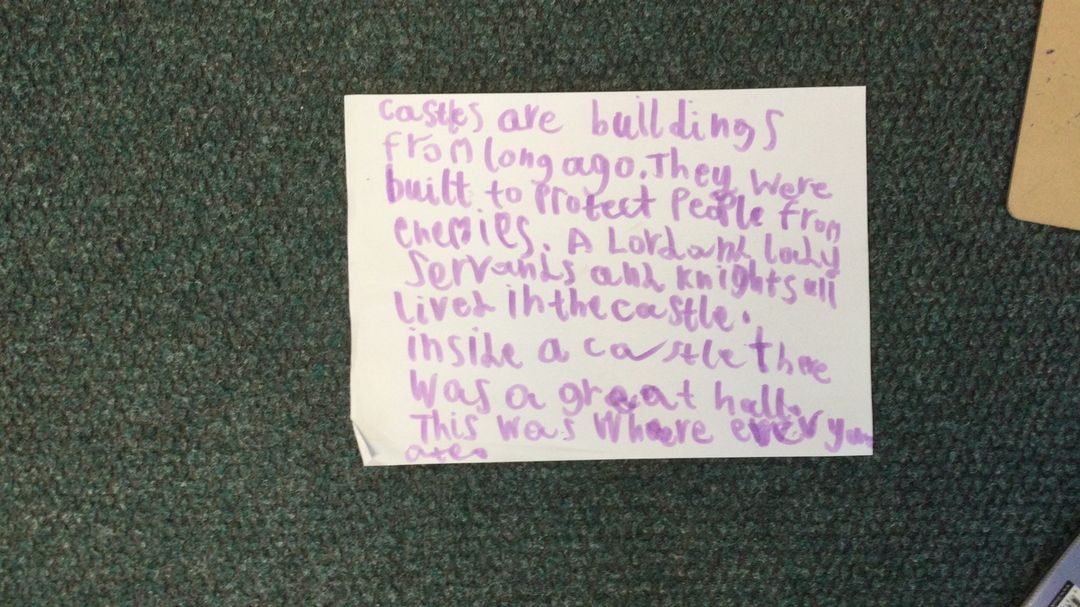 castles are buildings
from long ago. They were
built to Protect People from
enemies. A Lord and lady
Servants and knights all
lived in the castle.
inside a castle there
was a great hall.
This was Where every
ate.